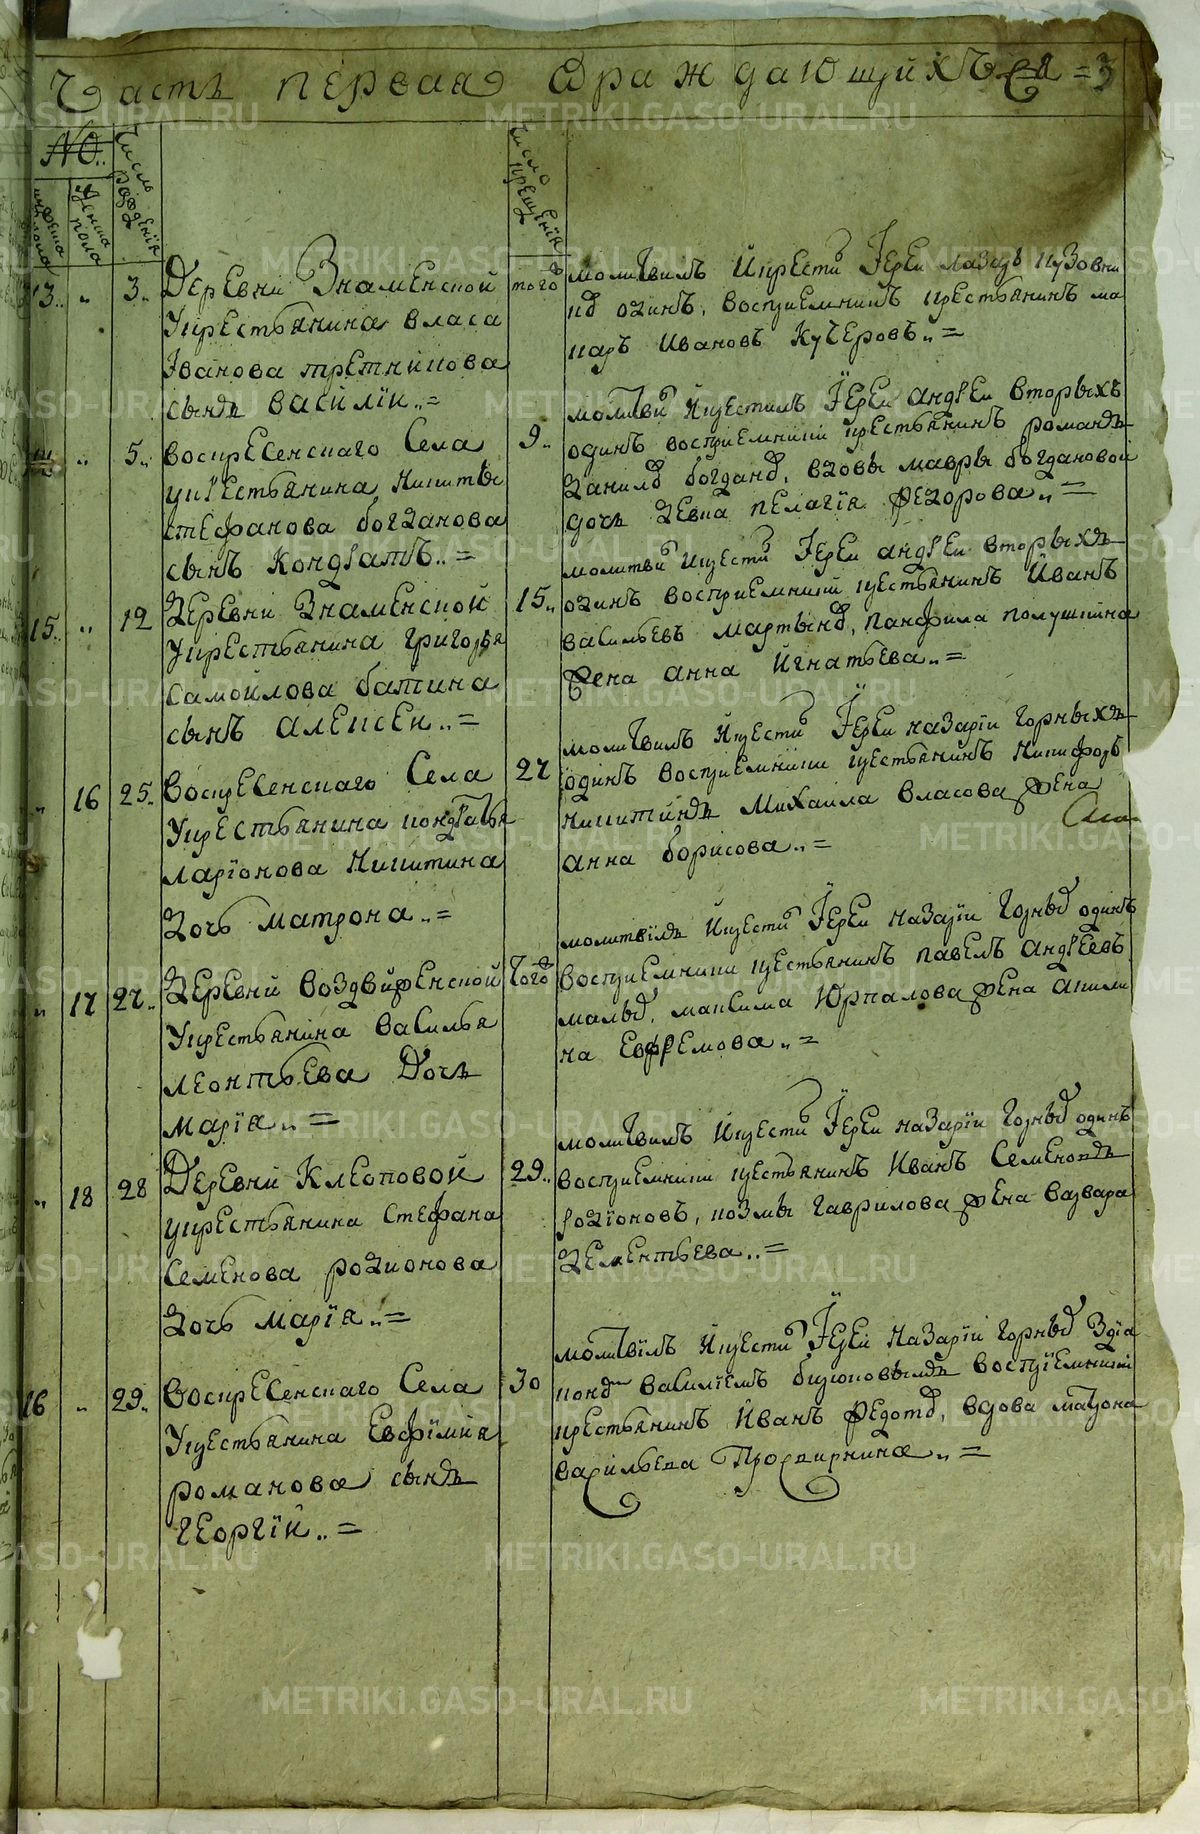 Часть первая Ѡраждающихъся = 3
№
мужеска пола
женска пола
Число рожденія
Число крещенія
13.. „ 3..
Деревни Знаменской
Укрестьянина Власа
Іванова третникова
сынъ Василіи..=
того
молитвилъ Икрестилъ Іерей
одинъ, восприемникъ крестьянинъ ма
каръ Ивановъ Кучеровъ..=
14 „ 5..
Воскресенскаго Села
укрестьянина Никиты
Стефанова богданова
сынъ Кондратъ..=
9..
молитви Икрестилъ Іерей андрей Вторыхъ
одинъ восприемники крестьянинъ романъ
данилов богданов, вдовы мавры богдановой
дочь девка пелагія федорова..=
15.. „ 12
Деревни Знаменской
укрестьянина григорья
самойлова батина
сынъ алексеи..=
15..
молитви Икрести Іерей андрей вторыхъ
одинъ восприемники крестьянинъ Иванъ
васильевъ мартынов, панфила полушкина
жена анна Игнатьева..=
„ 16 25..
Воскресенскаго Села
Укрестьянина кондратья
ларіонова Никитина
Дочь матрона..=
27
молитвилъ Икрести Іерей назаріи горныхъ
одинъ восприемники крестьянинъ Никифоръ
никитинъ Михаила власова жена
анна борисова..=
„ 17 27..
Деревни воздвиженской
Укрестьянина василья
леонтьева Дочь
марія..=
того
молитвилъ Икрести Іерей назаріи горных одинъ
восприемники крестьянинъ павелъ андреевъ
малых, максима Юркалова жена акили
на Евфремова..=
„ 18 28
Деревни Клеоповой
укрестьянина Стефана
Семенова родионова
Дочь марія..=
29..
молитвилъ Икрести Іерей назаріи горных одинъ
восприемники крестьянинъ Иванъ Семеновъ
родіоновъ, козмы гаврилова жена варвара
дементьева..=
16 „ 29..
Воскресенскаго Села
Укрестьянина Евфимія
романова сынъ
георгій..=
30
молитвилъ Икрести Іерей назарій горных здіа
кон василіемъ бирюковымъ восприемники
крестьянинъ Иванъ федотов, вдова матрона
васильева Просвирнина..=
METRIKI.GASO-URAL.RU